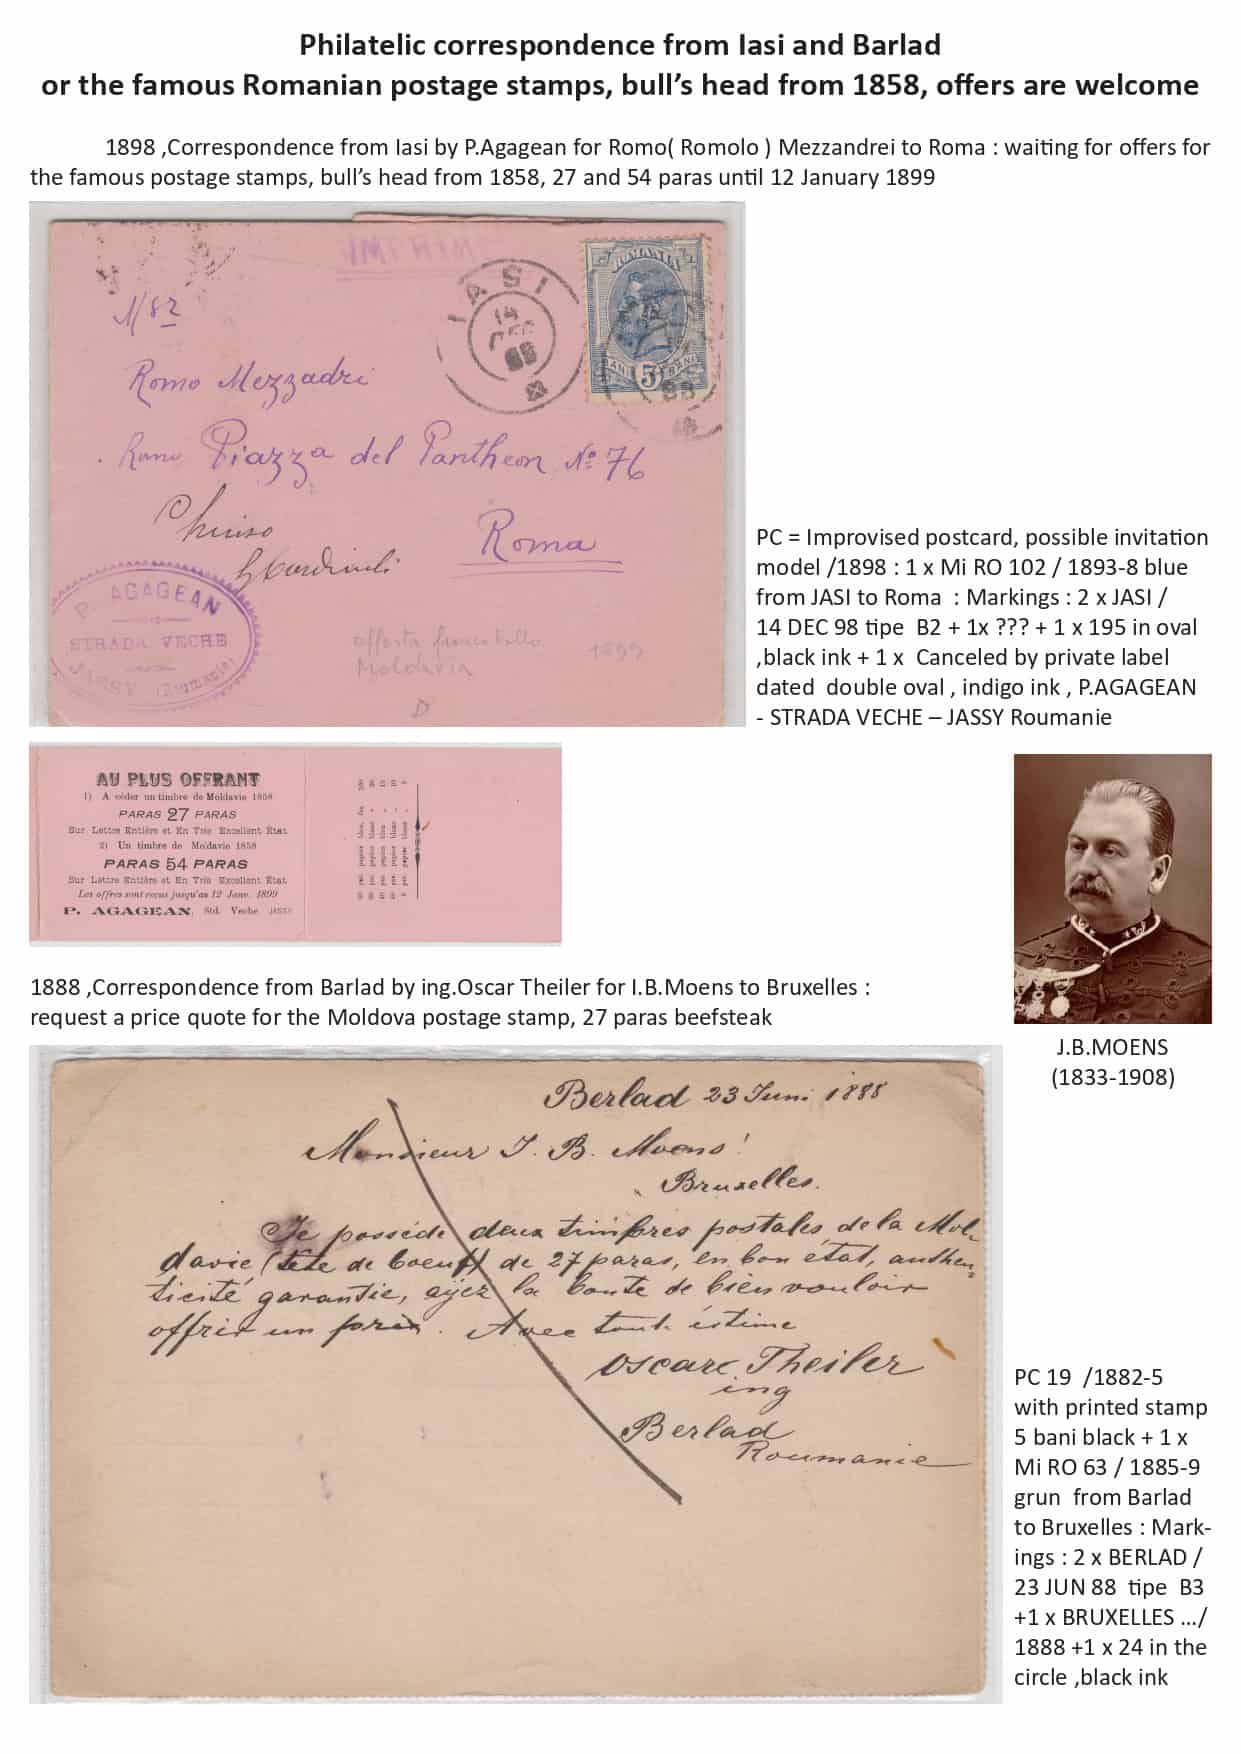 Philatelic correspondence from Iasi and Barlad
or the famous Romanian postage stamps, bull's head from 1858, offers are welcome
1898 ,Correspondence from Iasi by P.Agagean for Romo( Romolo ) Mezzandrei to Roma : waiting for offers for
the famous postage stamps, bull's head from 1858, 27 and 54 paras until 12 January 1899
IASI
14
DEC
98
ROMANIA
BANI 5 BANI
Romo Mezzadri
Roma Piazza del Pantheon No 76
Roma
Chiuso
P. AGAGEAN
STRADA VECHE
JASSY (Roumanie)
offerta francobollo 1899
Moldavia
PC = Improvised postcard, possible invitation
model /1898 : 1 x Mi RO 102 / 1893-8 blue
from JASI to Roma : Markings : 2 x JASI /
14 DEC 98 tipe B2 + 1x ??? + 1 x 195 in oval
,black ink + 1 x Canceled by private label
dated double oval , indigo ink , P.AGAGEAN
- STRADA VECHE – JASSY Roumanie
AU PLUS OFFRANT
1) A céder un timbre de Moldavie 1858
PARAS 27 PARAS
Sur Lettre Entière et En Très Excellent État
2) Un timbre de Moldavie 1858
PARAS 54 PARAS
Sur Lettre Entière et En Très Excellent État
Les offres sont reçus jusqu'au 12 Janv. 1899
P. AGAGEAN, Std. Veche JASSY
J.B.MOENS
(1833-1908)
1888 ,Correspondence from Barlad by ing.Oscar Theiler for I.B.Moens to Bruxelles :
request a price quote for the Moldova postage stamp, 27 paras beefsteak
Berlad 23 Juni 1888
Monsieur J. B. Moens!
Bruxelles.
Je possède deux timbres postales de la Mol-
davie (tête de boeuf) de 27 paras, en bon état, authen-
ticité garantie, ayez la bonté de bien vouloir
offrir un prix. Avec toute éstime
Oscar Theiler
ing
Berlad
Roumanie
PC 19 /1882-5
with printed stamp
5 bani black + 1 x
Mi RO 63 / 1885-9
grun from Barlad
to Bruxelles : Mark-
ings : 2 x BERLAD /
23 JUN 88 tipe B3
+1 x BRUXELLES .../
1888 +1 x 24 in the
circle ,black ink